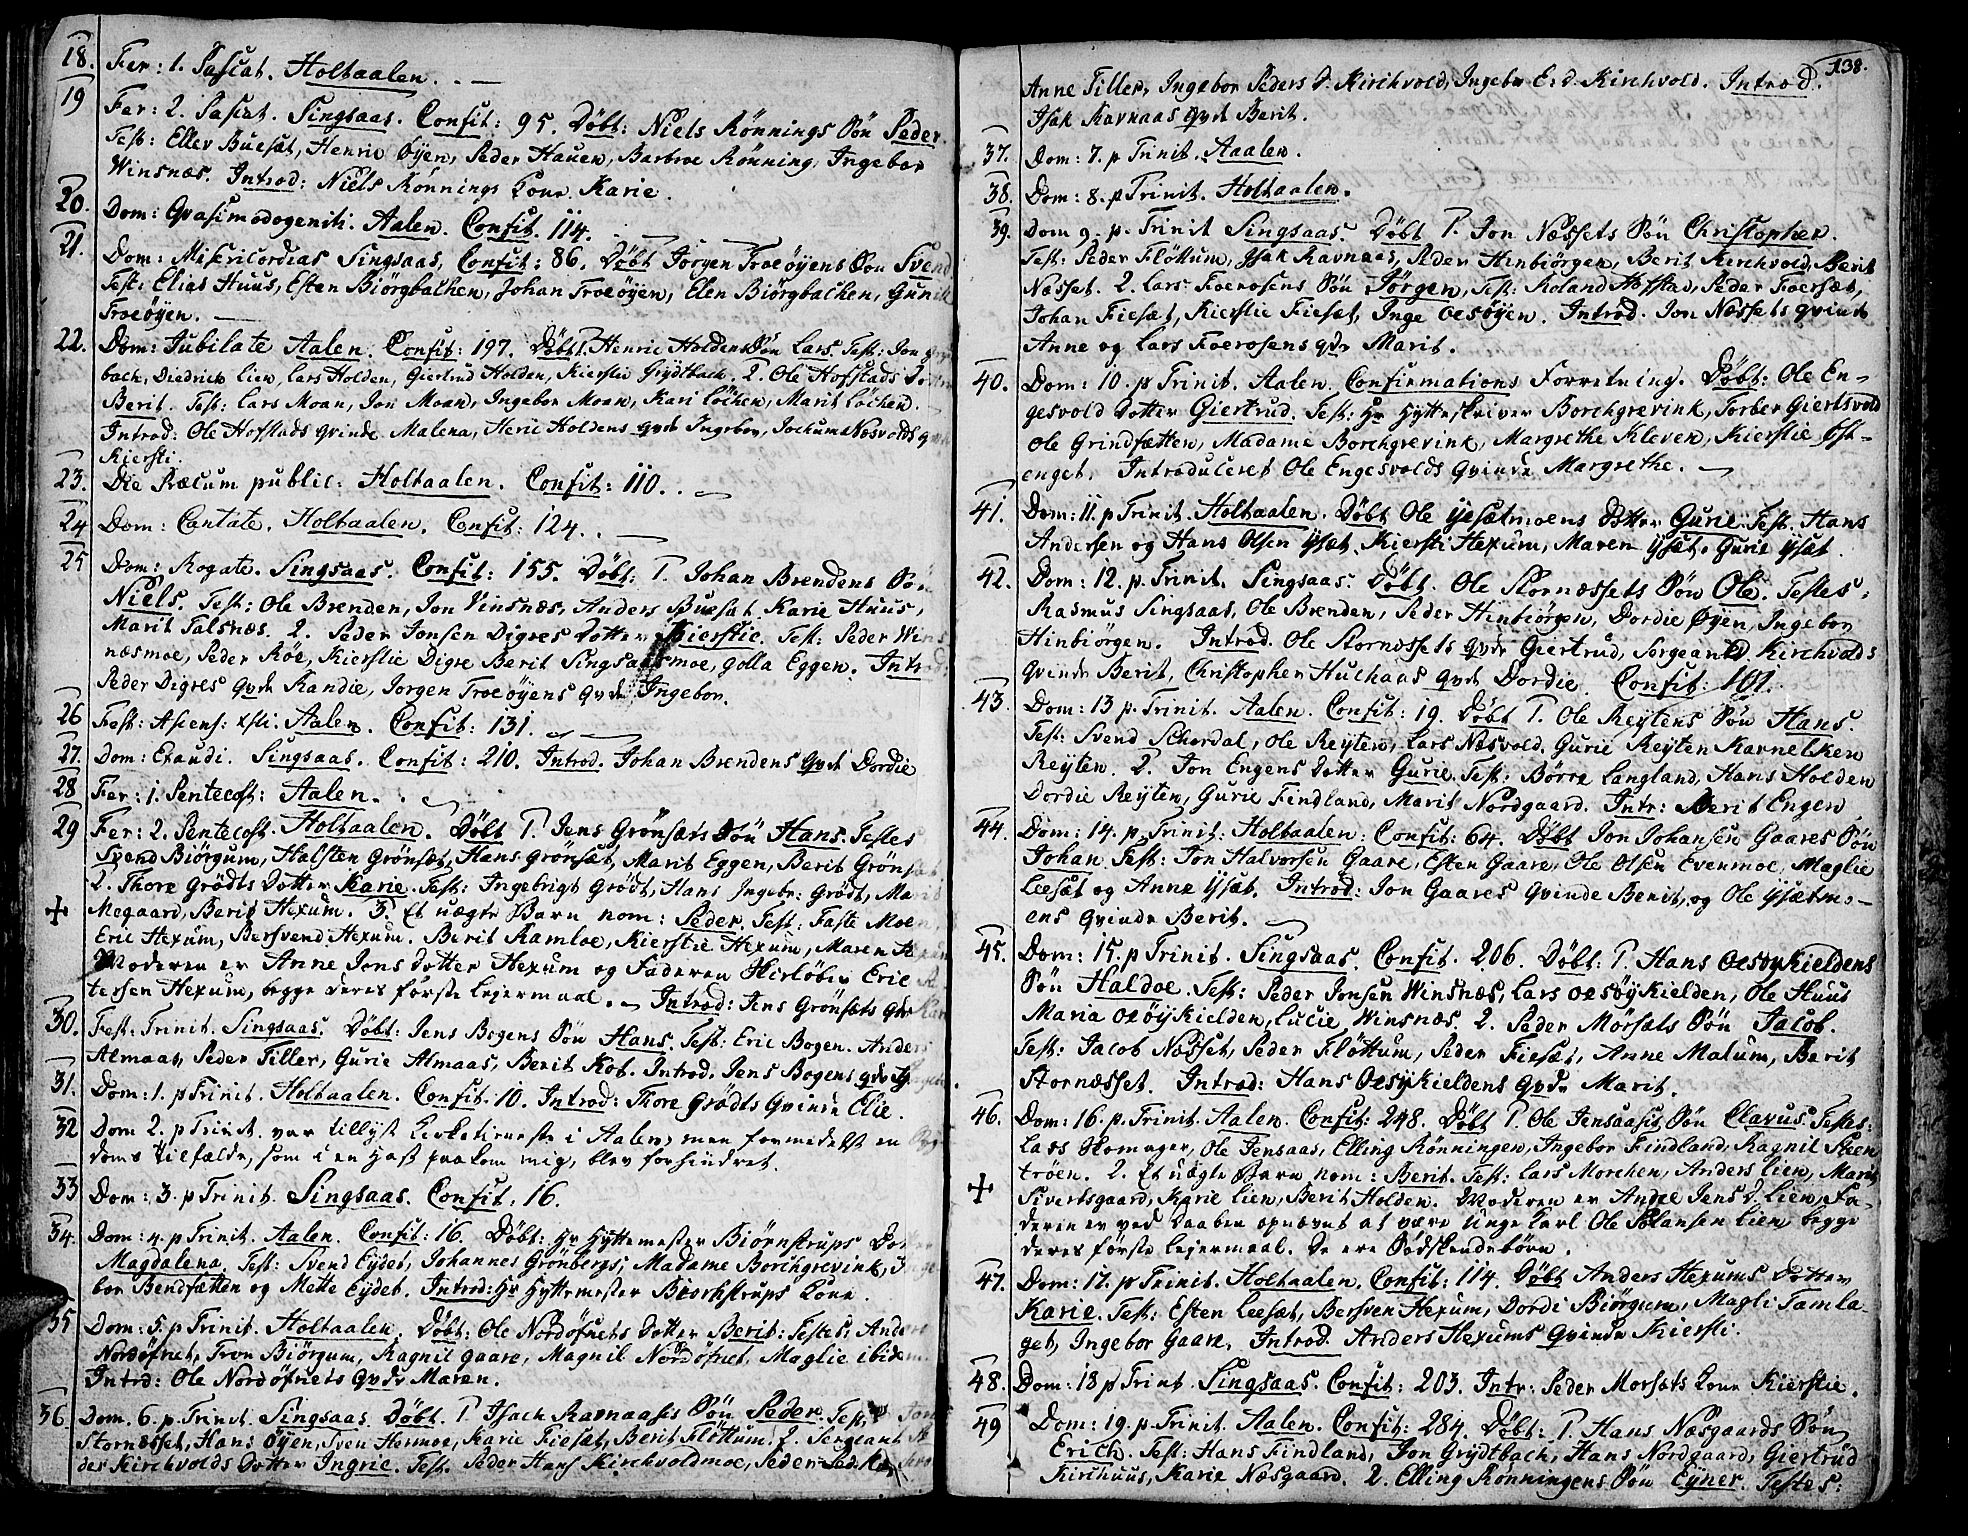 18. Fer: 1. Pascat. Holtaalen.
19 Fer: 2. Pascat. Singsaas. Confit: 95. Döbt: Niels Rönnings Sön Peder.
Test: Eller Buesæt, Henric Öyen, Peder Hauen, Barbroe Rönning, Ingebor
Winsnæs. Introd: Niels Rönnings Kone Karie.
20. Dom: Qvasimodogeniti. Aalen. Confit. 114.
21. Dom: Misericordias Singsaas, Confit: 86. Döbt Jörgen Troeöyens Sön Svend
Test: Elias Huus, Esten Biörgbakken, Johan Troeöyen, Elen Biörgbakken, Gunil
Troeöyen.
22. Dom: Jubilate Aalen. Confit: 197. Döbt 1. Henric Holdens Sön Lars. Test: Jon
bach, Diedrich Lien, Lars Holden, Giertrud Holden, Kierstie Grydtbach. 2. Ole Hofstads
Berit. Test: Lars Moan, Jon Moan, Ingebor Moan, Kari Löchen, Marit Löchen.
Introd: Ole Hofstads Qvinde Malena, Henric Holdens qvde Ingebor, Jochum Næsvolds
Kiersti.
23. Die Præcum public: Holtaalen. Confit: 110.
24 Dom: Cantate. Holtaalen. Confit: 124.
25 Dom: Rogate. Singsaas. Confit: 155. Döbt: 1. Johan Brendens Sön
Niels. Test: Ole Brenden, Jon Vinsnæs, Anders Buesæt, Karie Huus,
Marit Talsnæs. 2. Peder Jonsen Digres Dotter Kierstie. Test: Peder Wins
næsmoe, Peder Röe, Kierstie Digre Berit Singsaasmoe, Golla Eggen. Introd.
Peder Digres Qvde Randie, Jorgen Troeöyens qvde Ingebor.
26 Fest: Ascens: Xsti. Aalen. Confit: 131.
27. Dom: Exaudi. Singsaas. Confit: 210. Introd. Johan Brendens Qvde Dordie
28 Fer: 1. Pentecost: Aalen.
29 Fer: 2. Pentecost. Holtaalen. Döbt 1. Jens Grönsæts Sön Hans. Testes
Svend Biörgum, Halsten Grönsæt, Hans Grönsæt, Marit Eggen, Berit Gröns
2. Thore Grödts Dotter Karie. Test: Ingebrigt Grödt, Hans Ingebr: Grödt, Marit
Megaard, Berit Hexum. 3. Et uægte Barn nom: Peder. Test: Faste Moen,
Eric Hexum, Bersvend Hexum. Berit Ramloe, Kierstie Hexum, Maren
Moderen er Anne Jons dotter Hexum og Faderen Eric
tersen Hexum, begge deres förste Lejermaal. Introd: Jens Grönsæts
30. Fest: Trinit. Singsaas. Döbt: Jens Bogens Sön Hans. Test: Eric Bogen. Anders
Almaas, Peder Tiller, Gurie Almaas, Berit Kob. Introd. Jens Bogens qvde
31. Dom: 1. p Trinit. Holtaalen. Confit. 10. Introd: Thore Grödts Qvinde Elie.
32 Dom 2. p Trinit. var tillyst Kirketieneste i Aalen, men formedelst en
doms Tilfælde, som i en Hast paakom mig, blev forhindret.
33 Dom: 3. p Trinit. Singsaas. Confit. 16.
34. Dom: 4. p Trinit. Aalen. Confit: 16. Döbt: Hr Hyttemester Biörnstrups
Magdalena. Test: Svend Eydet, Johannes Grönbergs, Madame Borchgrevink,
bor Bendsætten og Mette Eydet. Introd: Hr Hyttemester Kone.
35 Dom: 5. p Trinit. Holtaalen. Döbt: Ole Nordöfnets Dotter Berit: Testes: Anders
Nordöfnet, Tron Biörgum, Ragnil Gaare, Magnil Nordöfnet, Maglie ibidem.
Introd: Ole Nordöfnets Qvde Maren.
36 Dom. 6. p Trinit. Singsaas. Döbt. 1. Isach Ravnaases Sön Peder. Test:
Stornæsset, Hans Öyen, Sven Hermoe, Karie Fiesæt, Berit Flöttum. 2. Sergeant
der Kirchvolds Dotter Ingrie. Test. Peder Hans Kirchvoldmoe,
138.
Anne Tiller, Ingebor Peders D. Kirchvold, Ingebor E: d. Kirchvold. Introd.
Isak Ravnaas Qvde Berit.
37. Dom: 7. p Trinit. Aaalen.
38. Dom: 8. p Trinit. Holtaalen.
39. Dom 9. p. Trinit Singsaas. Döbt 1. Jon Næssets Sön Christopher.
Test: Peder Flöttum, Isak Ravnaas, Peder Hinbiörgen, Berit Kirchvold, Berit
Næsset. 2. Lars Foerosens Sön Jörgen, Test: Roland Hofstad, Peder Foersæt,
Johan Fiesæt, Kierstie Fiesæt, Inge Oesöyen. Introd. Jon Næssets qvinde
Anne og Lars Foerosens qvde Marit.
40. Dom: 10. p Trinit. Aalen. Confirmations Forretning. Döbt: Ole En-
gesvold Dotter Giertrud. Test: Hr Hytteskriver Borchgrevink, Torber Giertsvold
Ole Grindsætten, Madame Borchgrevink, Margrethe Kleven, Kierstie Öst-
enget. Introduceret Ole Engesvolds Qvinde Margrethe.
41. Dom: 11. p Trinit. Holtaalen. Döbt Ole Ysætmoens Dotter Gurie. Test. Hans
Andersen og Hans Olsen Ysæt, Kiersti Hexum, Maren Ysæt, Gurie Ysæt.
42. Dom: 12. p. Trinit. Singsaas. Döbt. Ole Stornæssets Sön Ole. Testes.
Rasmus Singsaas, Ole Brenden, Peder Hinbiörgen, Dordie Öyen, Ingebor
Hinbiörgen. Introd. Ole Stornæssets qvde Giertrud, Sergeant Kirchvolds
Qvinde Berit, Christopher Hulhaas qvde Dordie. Confit: 101.
43. Dom: 13 p. Trinit. Aalen. Confit: 19. Döbt 1. Ole Reytens Sön Hans.
Test: Svend Schordal, Ole Reyten, Lars Næsvold, Gurie Reyten Karnelken
Reyten. 2. Jon Engens Dotter Gurie. Test: Börre Langland, Hans Holden
Dordie Reyten, Gurie Findland, Marit Nordgaard. Intr: Berit Engen
44. Dom: 14. p. Trinit: Holtaalen: Confit: 64. Döbt Jon Johansen Gaares Sön
Johan Test: Jon Halvorsen Gaare, Esten Gaare, Ole Olsen Evenmoe, Maglie
Leesæt og Anne Ysæt. Introd: Jon Gaares Qvinde Berit, og Ole Ysætmo-
ens Qvinde Berit.
45. Dom: 15. p Trinit. Singsaas. Confit. 206. Döbt: 1. Hans Oesöykieldens
Sön Haldoe. Test: Peder Jonsen Winsnæs, Lars Oesöykielden, Ole Huus
Maria Oesöykielden, Lucie Winsnæs. 2. Peder Mörsæts Sön Jacob.
Test: Jacob Næsset, Peder Flöttum, Peder Fiesæt, Anne Malum, Berit
Stornæsset. Introd: Hans Oesöykieldens Qvde Marit.
46. Dom: 16. p. Trinit. Aalen. Confit: 248. Döbt 1. Ole Jensaasis Sön Clavus. Testes:
Lars Skomager, Ole Jensaas, Elling Rönningen, Ingebor Findland, Ragnil Steen
tröen. 2. Et uægte Barn nom: Berit. Test: Lars Morchen, Anders Lien, Marit
Sivertsgaard, Karie Lien, Berit Holden. Moderen er Jens D. Lien, Fa-
deren er ved Daaben opnævnt at være Unge Karl Ole Lien begge
deres förste Lejermaal. De ere Södskendebörn.
47. Dom: 17. p Trinit. Holtaalen, Confit: 114. Döbt Anders Hexums Dotter
Karie. Test: Esten Leesæt, Bersven Hexum, Dordi Biörgum, Magli Tamla-
get, Ingebor Gaare. Introd. Anders Hexums Qvinde Kiersti.
48. Dom: 18 p Trint. Singsaas. Confit: 203. Intr: Peder Morsæts Kone Kierstie.
49 Dom: 19. p. Trinit. Aalen. Confit: 284. Döbt: 1. Hans Næsgaards Sön
Erich. Test: Hans Findland, Jon Grydtbach, Hans Nordgaard, Giertrud
Kirchuus, Karie Næsgaard. 2. Elling Rönningens Sön Eyner. Testes: